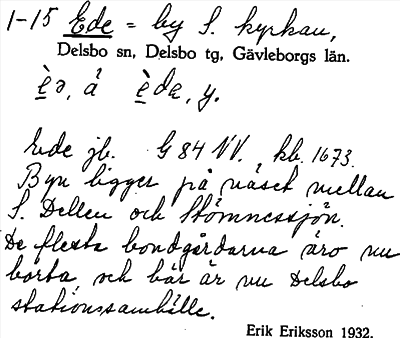 1-15 Ede = by S. kyrkan,
Delsbo sn, Delsbo tg, Gävleborgs län.
è̱ə, å è̱da, y.
Ede jb. G 84 NV. kb. 1673.
Byn ligger på näset mellan
S. Dellen och Stömnessjön.
De flesta bondgårdarna äro nu
borta och här är nu Delsbo
stationssamhälle.
Erik Eriksson 1932.